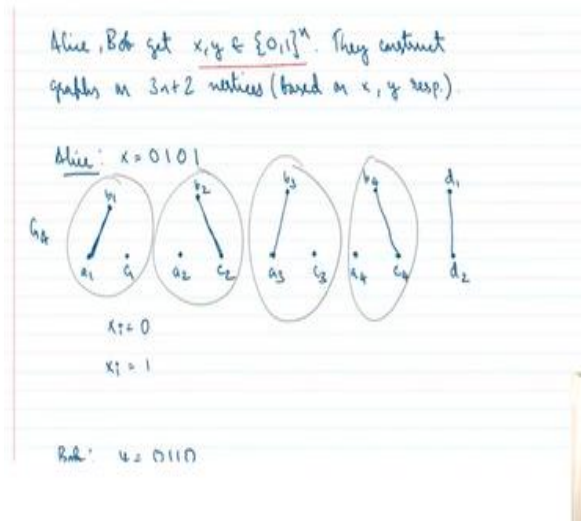 Alice, Bob get x, y ∈ {0,1}ⁿ. They construct
graphs on 3n+2 vertices (based on x, y resp.)
Alice: x = 0101
b₁ b₂ b₃ b₄ d₁
G_A
a₁ c₁ a₂ c₂ a₃ c₃ a₄ c₄ d₂
xᵢ = 0
xᵢ = 1
Bob: y = 0110